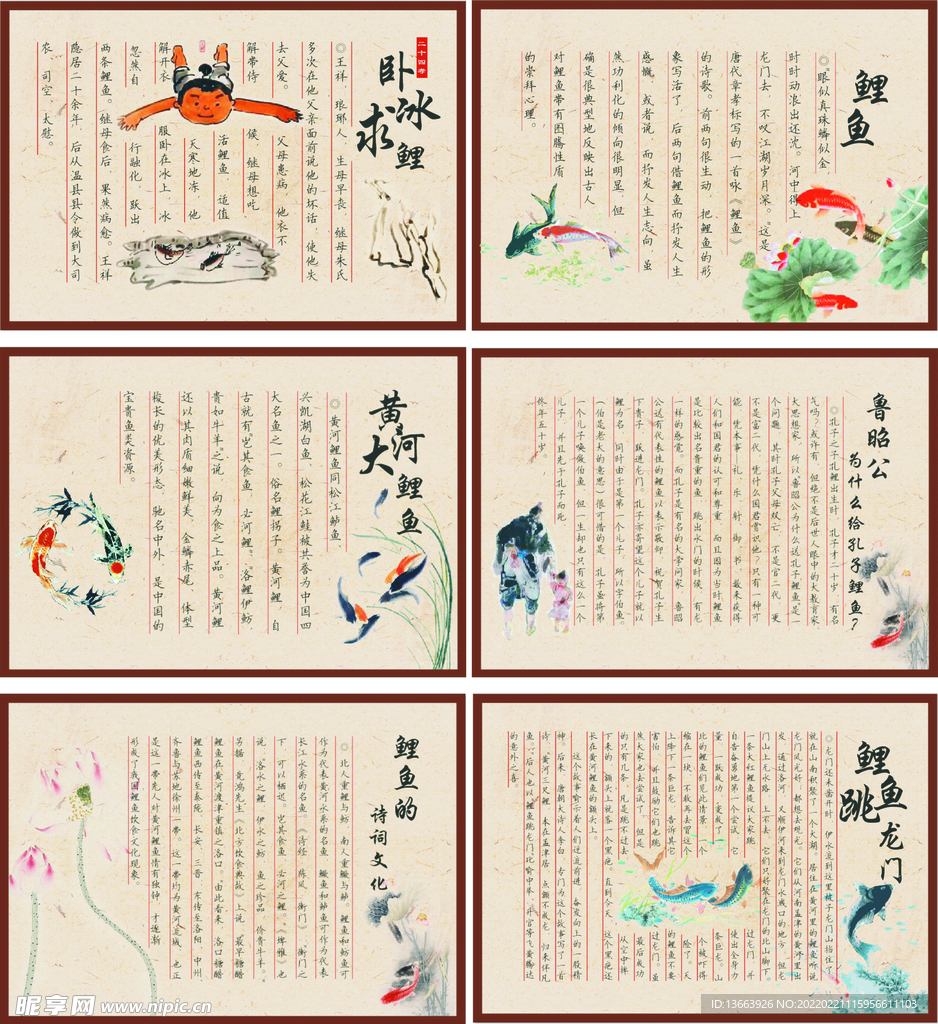 二十四孝
卧冰
求鲤
◎王祥 琅琊人 生母早丧 继母朱氏
多次在他父亲面前说他的坏话 使他失
去父爱。 父母患病 他衣不
解带侍 候,继母想吃
活鲤鱼 适值
天寒地冻 他
解开衣 服卧在冰上 冰
忽然自 行融化 跃出
两条鲤鱼。继母食后 果然病愈。王祥
隐居二十余年,后从温县县令做到大司
农、司空、太慰。
鲤鱼
◎“眼似真珠鳞似金,
时时动浪出还沈。河中得上
龙门去,不叹江湖岁月深。”这是
唐代章孝标写的一首咏《鲤鱼》
的诗歌。前两句很生动 把鲤鱼的形
象写活了,后两句借鲤鱼而抒发人生
感慨,或者说 而抒发人生志向 虽
然功利化的倾向很明显,但
确是很典型地反映出古人
对鲤鱼带有图腾性质
的崇拜心理。
黄河
大鲤鱼
◎黄河鲤鱼同松江鲈鱼
兴凯湖白鱼、松花江鲑被共誉为中国四
大名鱼之一。俗名鲤拐子。黄河鲤,自
古就有“岂其食鱼 必河鲤”、“洛鲤伊鲂
贵如牛羊”之说 向为食之上品。黄河鲤
还以其肉质细嫩鲜美、金鳞赤尾、体型
梭长的优美形态 驰名中外 是中国的
宝贵鱼类资源。
鲁昭公
为什么给孔子鲤鱼?
◎孔子之子孔鲤出生时 孔子才二十岁,有名
气吗?或许有,但绝不是后世人眼中的大教育家、
大思想家,所以“鲁昭公为什么送孔子鲤鱼”是一
个问题 其时孔子父母双亡 不是官二代 更
不是富二代 凭什么国君赏识他?只有一种可
能 凭本事。礼、乐、射、御、书、数来获得
人们和国君的认可和尊重 而且因为当时鲤鱼
是比较出名贵重的鱼 跳出水门的时候,有龙
一样的感觉。而孔子是有名的大学问家 鲁昭
公送有代表性的鲤鱼以表示敬仰 祝贺孔子生
下贵子 跃进龙门 孔子亦寄望这个儿子就以
鲤鱼为名 同时由于是第一个儿子,所以字伯鱼。
(伯是老大的意思)很可惜的是 孔子虽将第
一个儿子唤做伯鱼 但一生却也只有这么一个
儿子,并且先于孔子而死
终年五十岁。
鲤鱼的
诗词文化
◎北人重鲤与鲂 南人重鳜与鲈。鲤鱼和鲂鱼可
作为代表黄河水系的名鱼 鳜鱼和鲈鱼可作为代表
长江水系的名鱼。《诗经·陈风·衡门》 衡门之
下,可以栖迟。岂其食鱼 必河之鲤。《埤雅》也
说 洛水之鲤 伊水之鲂 鱼之珍品 价贵牛羊。
另据 竟鸿先生《北方饮食典故》上说 最早糖醋
鲤鱼在黄河渡津重镇之洛口。由此看来,洛口糖醋
鲤鱼西传至秦苑、长安、三晋 东传至洛阳、中州
齐鲁与苏地徐州一带。这一带均为黄河流域,也正
是这一带先人对黄河鲤鱼情有独钟 才逐渐
形成了我国鲤鱼饮食文化现象。
鲤鱼
跳龙门
◎龙门还未凿开时 伊水流到这里被子龙门山挡住了
就在山南积聚了一个大湖。居住在黄河里的鲤鱼听说
龙门风光好 都想去观光。它们从河南孟津的黄河里出
发 通过洛河 又顺伊河来到龙门水溅口的地方 但龙
门山上无水路 上不去 它们只好聚在龙门的北山脚下。
一条大红鲤鱼提议大家跳 过龙门 并
自告奋勇地第一个尝试 它 使出全身力
量 一跃成功 变成了一 条巨龙。山
北的鲤鱼们见此情景 一个 个被吓得
缩在一块 不敢再去冒这个 险了。天
上降下一条巨龙 告诉其它 的鲤鱼不要
害怕 并且鼓励它们也跳 过龙门。虽
然大家也去尝试了 但是 最后成功
的只有几条 凡是跳不过去 从空中摔
下来的 额头上就落一个黑疤。直到今天 这个黑疤还
长在黄河鲤鱼的额头上。
这个故事喻示着人们逆流前进 奋发向上的一股精
神。后来 唐朝大诗人李白 专门为这个故事写了一首
诗 黄河三尺鲤 本在孟津居 点额不成龙 归来伴凡
鱼。后人也以鲤鱼跳龙门 比喻中举、升官等飞黄腾达
的意外之喜。
昵享网 www.nipic.cn
ID:13663926 NO:20220221115956611103